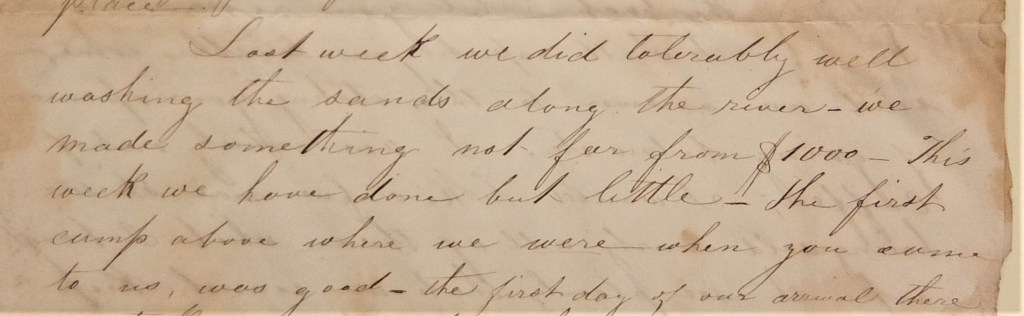 place
Last week we did tolerably well
washing the sands along the river - we
made something not far from $1000 - This
week we have done but little - The first
camp above where we were when you came
to us, was good - the first day of our arrival there